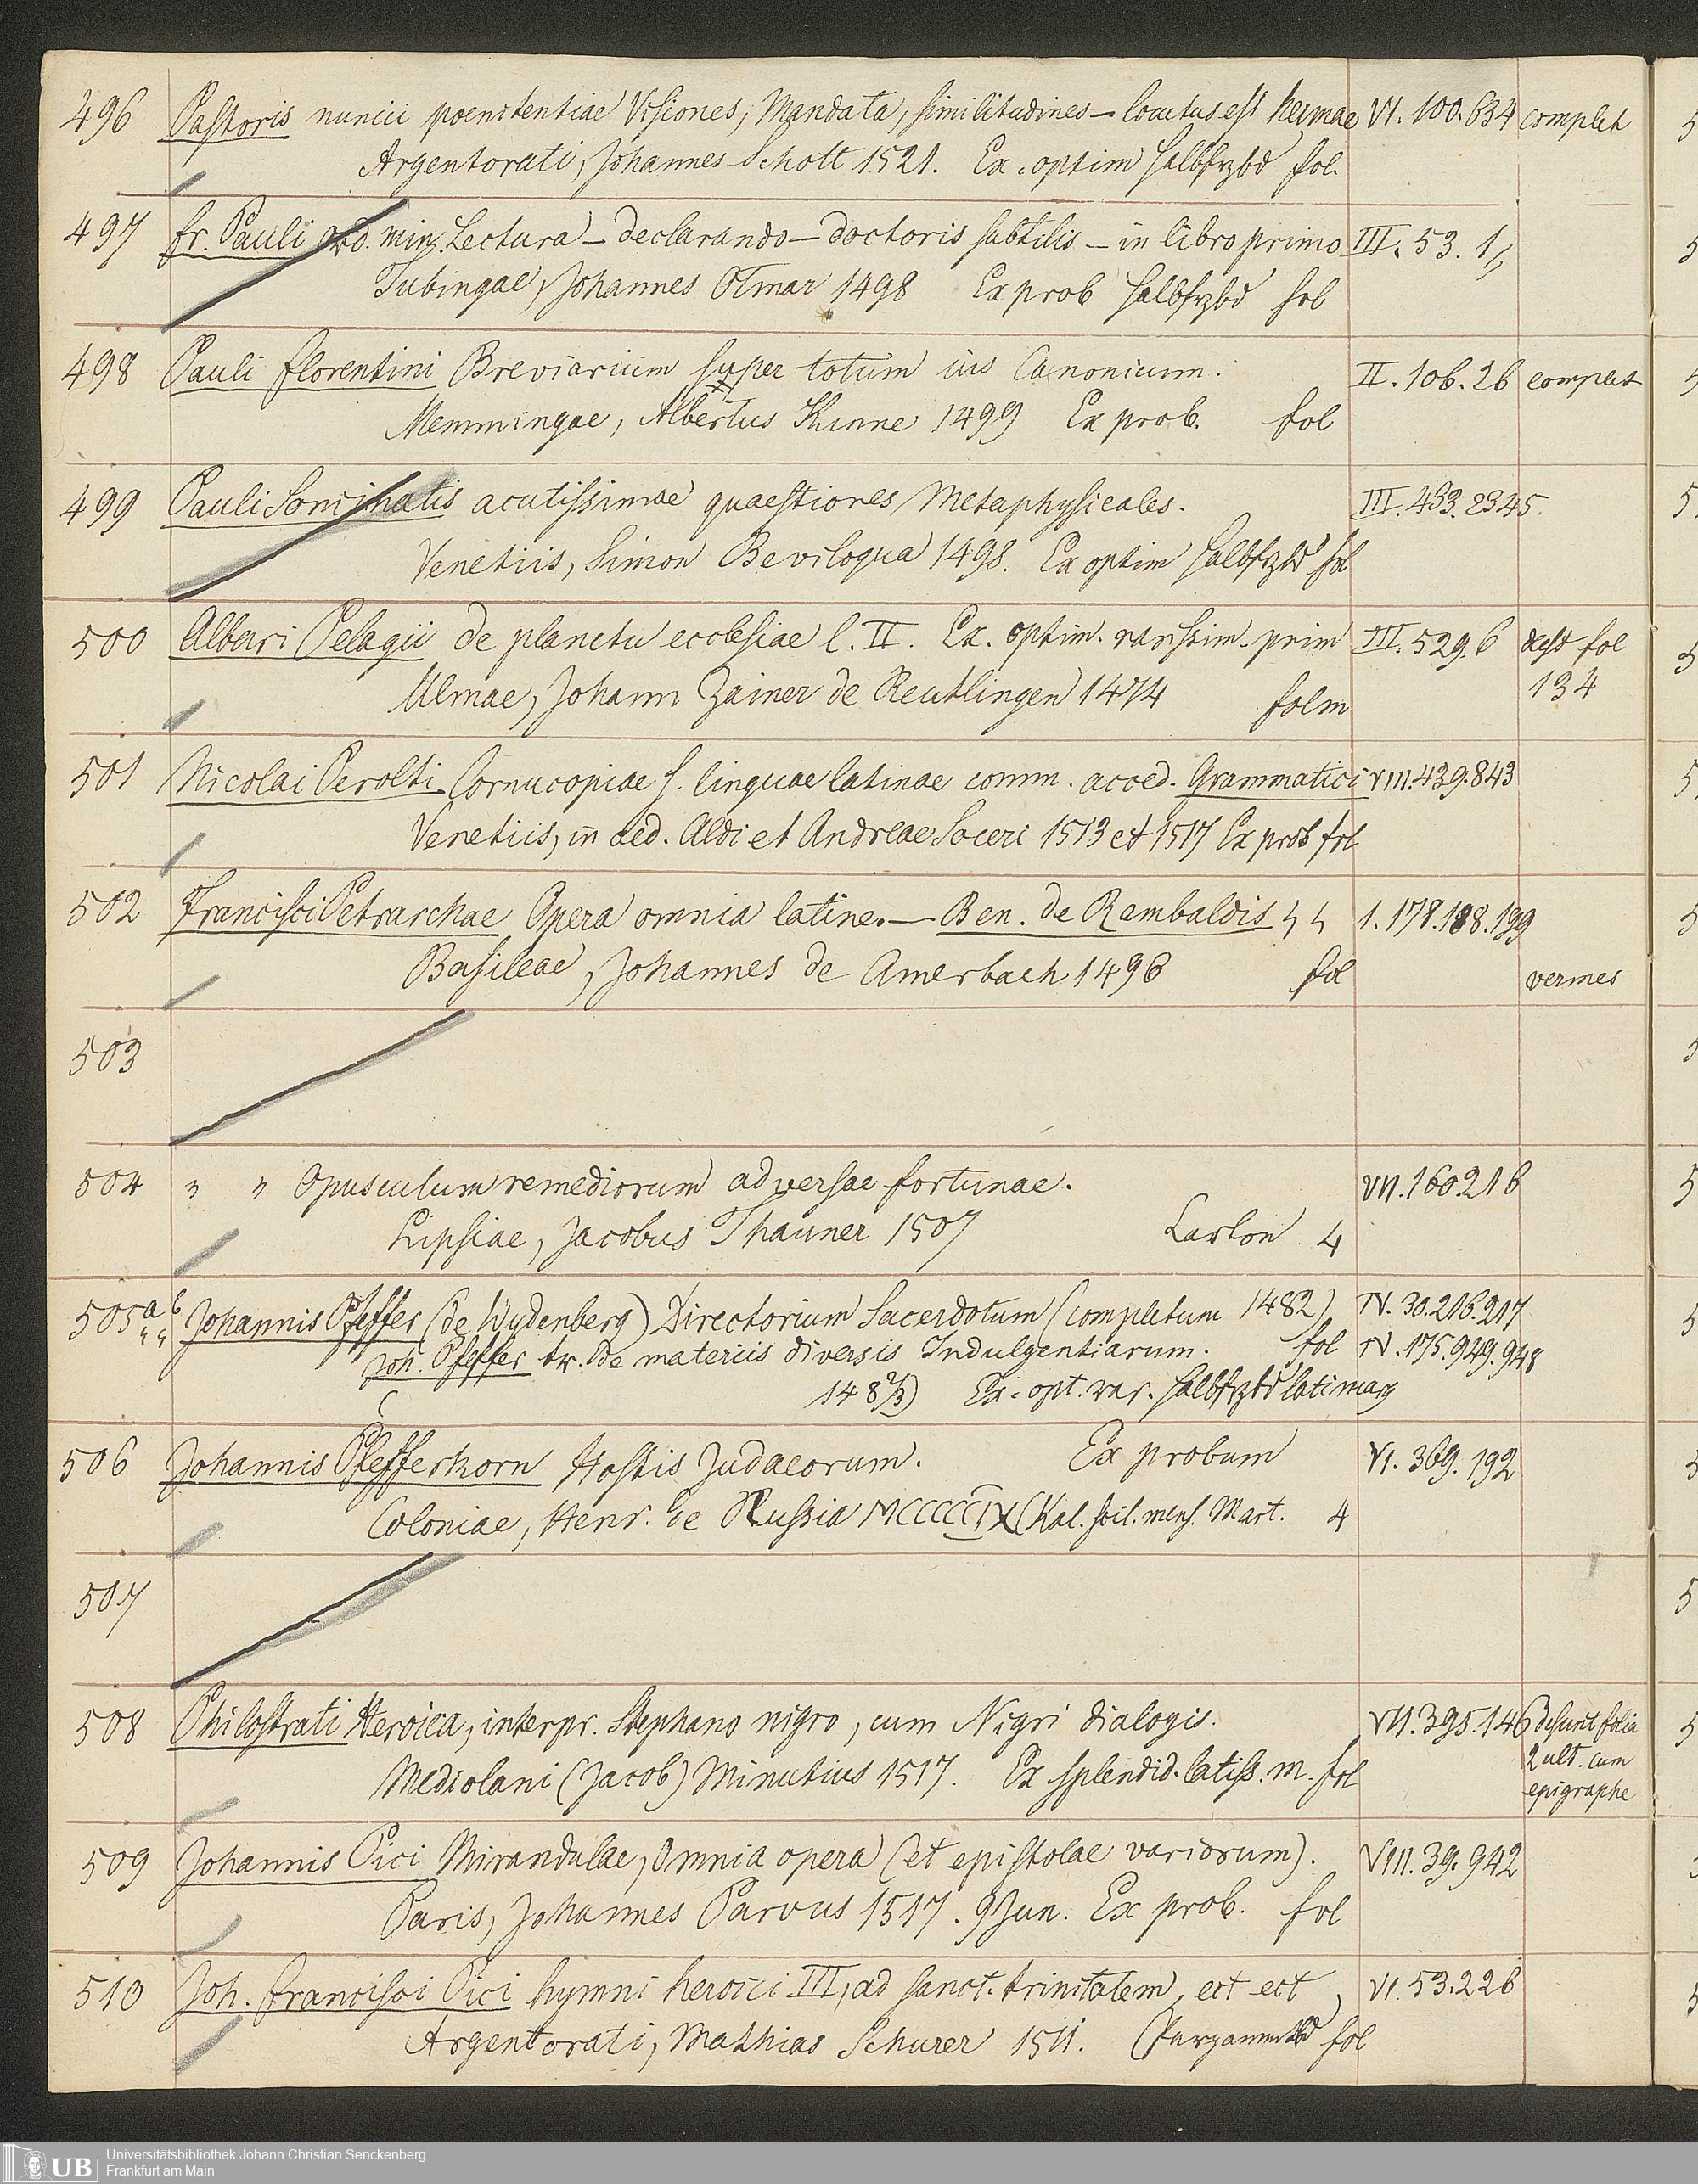 496 Pastoris nuncii poenitentiae Visiones, Mandata, similitudines – locutus est hermae VI. 100. 634 complet
Argentorati, Johannes Schott 1521. Ex. optim Halbfrzbd fol.
497 fr. Pauli ord. min. Lectura – declarando – doctoris subtilis – in libro primo III. 53. 1
Tubingae, Johannes Otmar 1498 Ex prob Halbfrzbd fol
498 Pauli florentini Breviarium super totum ius Canonicum. II. 106. 26 complet
Memmingae, Albertus Kunne 1499 Ex prob. fol
499 Pauli Soncinatis acutissimae quaestiones Metaphysicales. III. 433. 2345.
Venetiis, Simon Beviloqua 1498. Ex optim Halbfrzbd fol
500 Albari Pelagii de planctu ecclesiae l. II. Ex. optim. rarissim. prim III. 529. 6 dest fol
Ulmae, Johann Zainer de Reutlingen 1474 folm 134
501 Nicolai Perolti Cornucopiae s. linguae latinae comm. acced. Grammatici VIII. 439. 843
Venetiis, in aed. Aldi et Andreae Soceri 1513 et 1517 Ex prob fol
502 Francisci Petrarchae Opera omnia latine. – Ben. de Rembaldis 1. 178. 188. 199
Basileae, Johannes de Amerbach 1496 fol vermes
503
504 " " Opusculum remediorum adversae fortunae. VII. 160. 216
Lipsiae, Jacobus Thanner 1507 Carton 4
505 a b Johannis Pfeffer (de Wydenberg) Directorium Sacerdotum (completum 1482) IV. 30. 216. 217
Joh. Pfeffer tr. de materiis diversis Indulgentiarum. fol IV. 175. 949. 948
148 2/3) Ex. opt. rar. Halbfrzbd lati marg
506 Johannis Pfefferkorn Hostis Judaeorum. Ex probum VI. 369. 192
Coloniae, Henr. de Nussia MCCCCCIX (Kal. scil. mens. Mart. 4
507
508 Philostrati Heroica, interpr. Stephano nigro, cum Nigri dialogis. VII. 395. 146 desunt folia
Mediolani (Jacob) Minutius 1517. Ex splendid. latiss. m. fol 2 ult. cum
epigraphe
509 Johannis Pici Mirandulae, Omnia opera (et epistolae variorum). VIII. 39. 942
Paris, Johannes Parvus 1517. 9 Jun. Ex prob. fol
510 Joh. francisci Pici hymni heroici III, ad sanct. trinitatem, ect ect VI. 53. 226
Argentorati, Mathias Schurer 1511. fol
UB Universitätsbibliothek Johann Christian Senckenberg
Frankfurt am Main